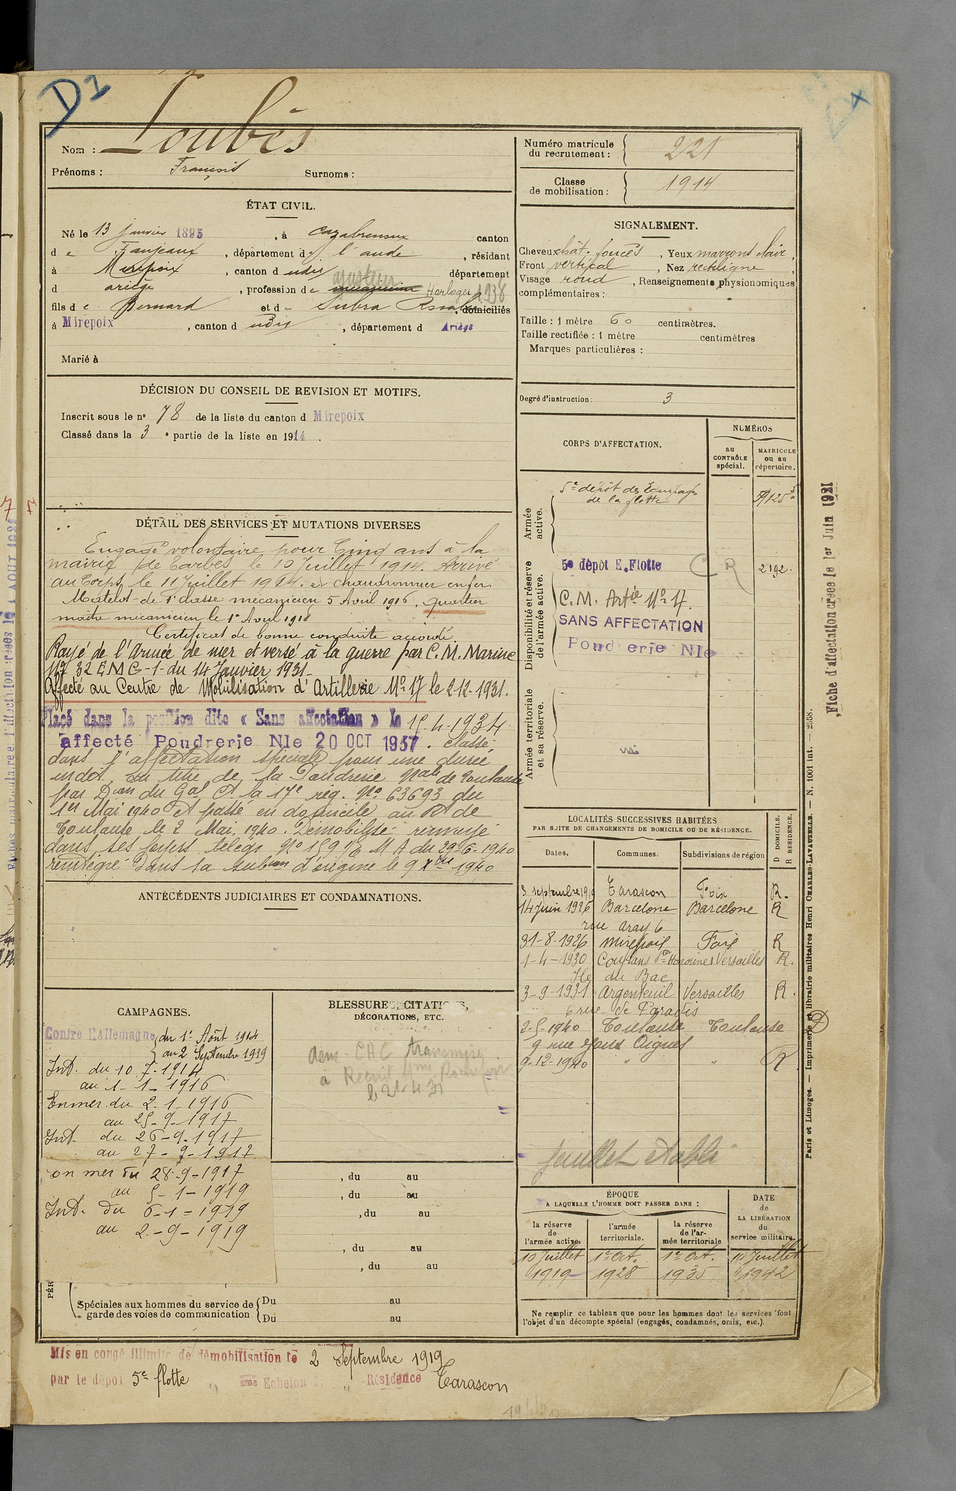 D1
Nom : Loubès
Prénoms : François Surnoms :
Numéro matricule du recrutement : 221
Classe de mobilisation : 1914
ÉTAT CIVIL.
Né le 13 janvier 1895, à canton
d e Fanjeaux, département d e l'aude, résidant
à Mirepoix, canton d udis département
d ariège, profession d e ajusteur mecanicien Horloger 1938
fils d e Bernard et d e Subra Rosa, domiciliés
à Mirepoix, canton d udis, département d Ariège
Marié à
SIGNALEMENT.
Cheveux chât. foncés, Yeux marrons clair,
Front vertical, Nez rectiligne
Visage rond, Renseignements physionomiques
complémentaires :
Taille : 1 mètre 60 centimètres.
Taille rectifiée : 1 mètre centimètres
Marques particulières :
Degré d'instruction : 3
DÉCISION DU CONSEIL DE REVISION ET MOTIFS.
Inscrit sous le nº 78 de la liste du canton d Mirepoix
Classé dans la 3e partie de la liste en 1914.
DÉTAIL DES SERVICES ET MUTATIONS DIVERSES
Engagé volontaire pour Cinq ans à la
mairie de Tarbes le 10 juillet 1914. Arrivé
au Corps le 11 juillet 1914. chaudronnier enfer
Matelot de 1e classe mecanicien 5 Avril 1916, quartier
maitre mecanicien le 1er Avril 1918
Certificat de bonne conduite accordé.
Rayé de l'Armée de mer et versé à la guerre par C.M. Marine
Nº 32 EMG-1 du 14 Janvier 1931-
Affecté au Centre de Mobilisation d'Artillerie Nº 17 le 2-12-1931.
Placé dans la position dite « Sans affectation » le 15-4-1934
affecté Poudrerie Nle 20 OCT 1937. Classé
dans l'affectation spéciale pour une durée
indet. au titre de la Poudrerie Nale de Toulouse
par Don du Gal Ct la 17e rég. Nº 63693 du
1er Mai 1940 et passé en domicile au R de
Toulouse le 2 Mai 1940. Démobilisé renvoyé
dans ses foyers télég. Nº MA du 29-6-1940
réintégré dans sa d'origine le 9 Xbre 1940
ANTÉCÉDENTS JUDICIAIRES ET CONDAMNATIONS.
CORPS D'AFFECTATION.
NUMÉROS
au CONTRÔLE spécial.
MATRICULE ou au répertoire.
Armée active.
5e dépôt des Équipages
de la flotte
Disponibilité et réserve de l'armée active.
5e dépôt E. Flotte CR 2192.
C.M. Artie Nº 17.
SANS AFFECTATION
Poudrerie Nle
Armée territoriale et sa réserve.
LOCALITÉS SUCCESSIVES HABITÉES
PAR SUITE DE CHANGEMENTS DE DOMICILE OU DE RÉSIDENCE.
D DOMICILE. R RÉSIDENCE.
Dates. Communes. Subdivisions de région
3 septembre 1919 Tarascon Foix R.
14 Juin 1926 Barcelone Barcelone R
rue aray 6
31-8-1926 Mirepoix Foix R
1-4-1930 Conflans Ste Honorine Versailles R.
Ile du Bac
3-9-1931 Argenteuil Versailles R.
6 rue de Paradis
2-5-1940 Toulouse Toulouse D
9 rue
9-12-1940 " " R
feuillet établi
CAMPAGNES.
Contre L'Allemagne du 1er Août 1914
au 2 Septembre 1919
Int. du 10-7-1914
au 1-1-1916
En mer du 2-1-1916
au 25-9-1917
Int. du 26-9-1917
au 27-9-1917
en mer du 28-9-1917
au 5-1-1919
Int. du 6-1-1919
au 2-9-1919
BLESSURES, CITATIONS,
DÉCORATIONS, ETC.
dem. CAC transmise
à Recrut
le 21-4-31
, du au
, du au
, du au
, du au
, du au
PÉR
Spéciales aux hommes du service de garde des voies de communication
Du au
Du au
ÉPOQUE
A LAQUELLE L'HOMME DOIT PASSER DANS :
la réserve de l'armée active.
l'armée territoriale.
la réserve de l'armée territoriale
DATE de LA LIBÉRATION du service militaire.
10 juillet 1er Oct. 1er Oct. 10 Juillet
1919 1928 1935 1942
Ne remplir ce tableau que pour les hommes dont les services font
l'objet d'un décompte spécial (engagés, condamnés, omis, etc.).
Mis en congé illimité de démobilisation le 2 Septembre 1919
par le dépôt 5e flotte " ème Echelon " Résidence Tarascon
Fiche d'affectation créée le 1er Juin 1931
Paris et Limoges. — Imprimerie et librairie militaires Henri CHARLES-LAVAUZELLE. — N. 1001 int. — 2558.